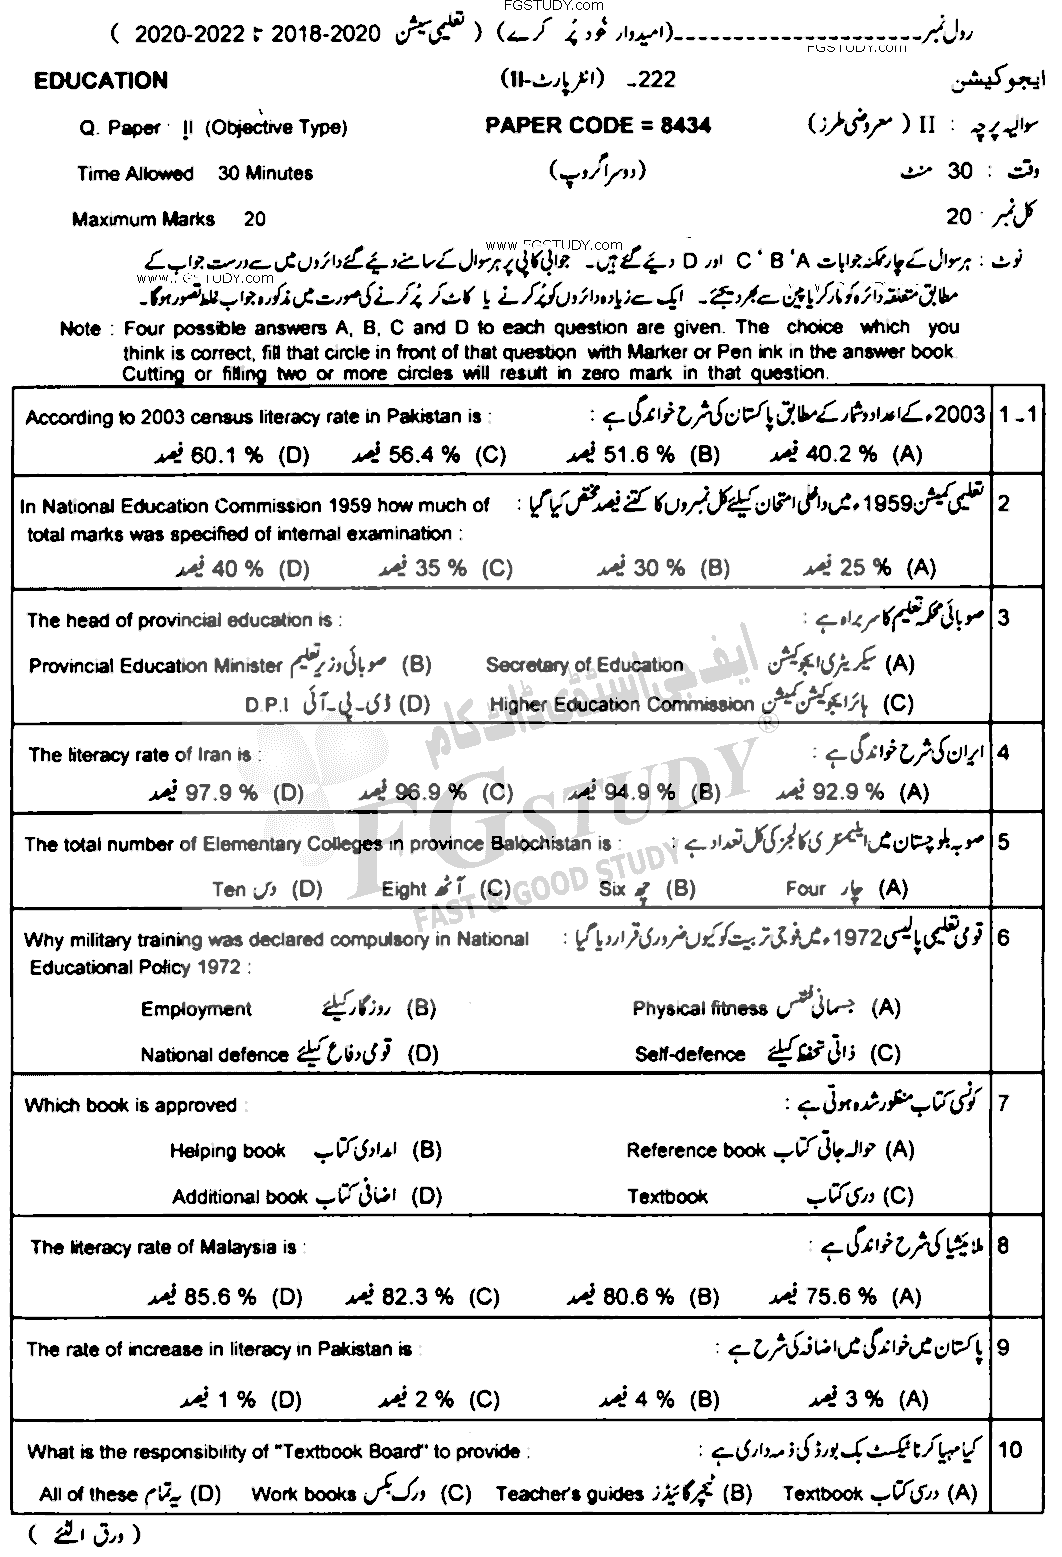 FGSTUDY.com
رول نمبر ـــــــــــــــــــــ (امیدوار خود پُر کرے) ( تعلیمی سیشن 2018-2020 تا 2020-2022 )
FGSTUDY.com
EDUCATION 222ـ (انٹر پارٹ-II) ایجوکیشن
Q. Paper : II (Objective Type) PAPER CODE = 8434 سوالیہ پرچہ : II ( معروضی طرز )
Time Allowed 30 Minutes (دوسرا گروپ) وقت : 30 منٹ
Maximum Marks 20 کل نمبر : 20
www.FGSTUDY.com
نوٹ : ہر سوال کے چار ممکنہ جوابات A ' B ' C اور D دیئے گئے ہیں۔ جوابی کاپی پر ہر سوال کے سامنے دیئے گئے دائروں میں سے درست جواب کے
www.FGSTUDY.com
مطابق متعلقہ دائرہ کو مارکر یا پین سے بھر دیجئے۔ ایک سے زیادہ دائروں کو پُر کرنے یا کاٹ کر پُر کرنے کی صورت میں مذکورہ جواب غلط تصور ہوگا۔
Note : Four possible answers A, B, C and D to each question are given. The choice which you
think is correct, fill that circle in front of that question with Marker or Pen ink in the answer book
Cutting or filling two or more circles will result in zero mark in that question.
According to 2003 census literacy rate in Pakistan is : 2003ء کے اعداد و شمار کے مطابق پاکستان کی شرح خواندگی ہے : 1ـ1
(A) 40.2 % فیصد (B) 51.6 % فیصد (C) 56.4 % فیصد (D) 60.1 % فیصد
In National Education Commission 1959 how much of تعلیمی کمیشن 1959ء میں داخلی امتحان کیلئے کل نمبروں کا کتنے فیصد مختص کیا گیا : 2
total marks was specified of internal examination :
(A) 25 % فیصد (B) 30 % فیصد (C) 35 % فیصد (D) 40 % فیصد
The head of provincial education is : صوبائی محکمہ تعلیم کا سربراہ ہے : 3
(A) سیکریٹری ایجوکیشن Secretary of Education (B) صوبائی وزیر تعلیم Provincial Education Minister
(C) ہائر ایجوکیشن کمیشن Higher Education Commission (D) ڈی۔پی۔آئی D.P.I
ایف جی اسٹڈی ڈاٹ کام
The literacy rate of Iran is : ایران کی شرح خواندگی ہے : 4
(A) 92.9 % فیصد (B) 94.9 % فیصد (C) 96.9 % فیصد (D) 97.9 % فیصد
FG STUDY ®
The total number of Elementary Colleges in province Balochistan is : صوبہ بلوچستان میں ایلیمنٹری کالجز کی کل تعداد ہے : 5
(A) چار Four (B) چھ Six (C) آٹھ Eight (D) دس Ten
FAST & GOOD STUDY
Why military training was declared compulsory in National قومی تعلیمی پالیسی 1972ء میں فوجی تربیت کو کیوں ضروری قرار دیا گیا : 6
Educational Policy 1972 :
(A) جسمانی فٹنس Physical fitness (B) روزگار کیلئے Employment
(C) ذاتی تحفظ کیلئے Self-defence (D) قومی دفاع کیلئے National defence
Which book is approved : کونسی کتاب منظور شدہ ہوتی ہے : 7
(A) حوالہ جاتی کتاب Reference book (B) امدادی کتاب Helping book
(C) درسی کتاب Textbook (D) اضافی کتاب Additional book
The literacy rate of Malaysia is : ملائیشیا کی شرح خواندگی ہے : 8
(A) 75.6 % فیصد (B) 80.6 % فیصد (C) 82.3 % فیصد (D) 85.6 % فیصد
The rate of increase in literacy in Pakistan is : پاکستان میں خواندگی میں اضافہ کی شرح ہے : 9
(A) 3 % فیصد (B) 4 % فیصد (C) 2 % فیصد (D) 1 % فیصد
What is the responsibility of "Textbook Board" to provide : کیا مہیا کرنا ٹیکسٹ بک بورڈ کی ذمہ داری ہے : 10
(A) درسی کتاب Textbook (B) ٹیچر گائیڈز Teacher's guides (C) ورک بکس Work books (D) یہ تمام All of these
( ورق الٹئے )